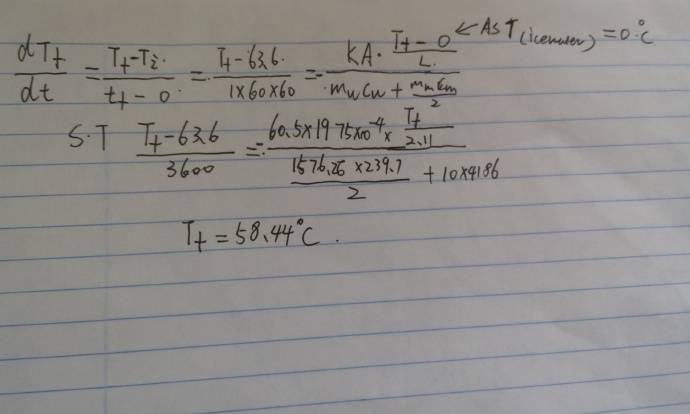 dT_f/dt = (T_f - T_i.)/(t_f - 0.) = (T_f - 63.6.)/(1×60×60) = - (KA. (T_f - 0)/L.)/(m_w c_w + (m_m c_m)/2) ← As T(icewater) = 0°C
S.T (T_f - 63.6)/3600 = - (60.5×19.75×10^-4 × T_f/2.11)/((1576.26×239.7)/2 + 10×4186)
T_f = 58.44°C.